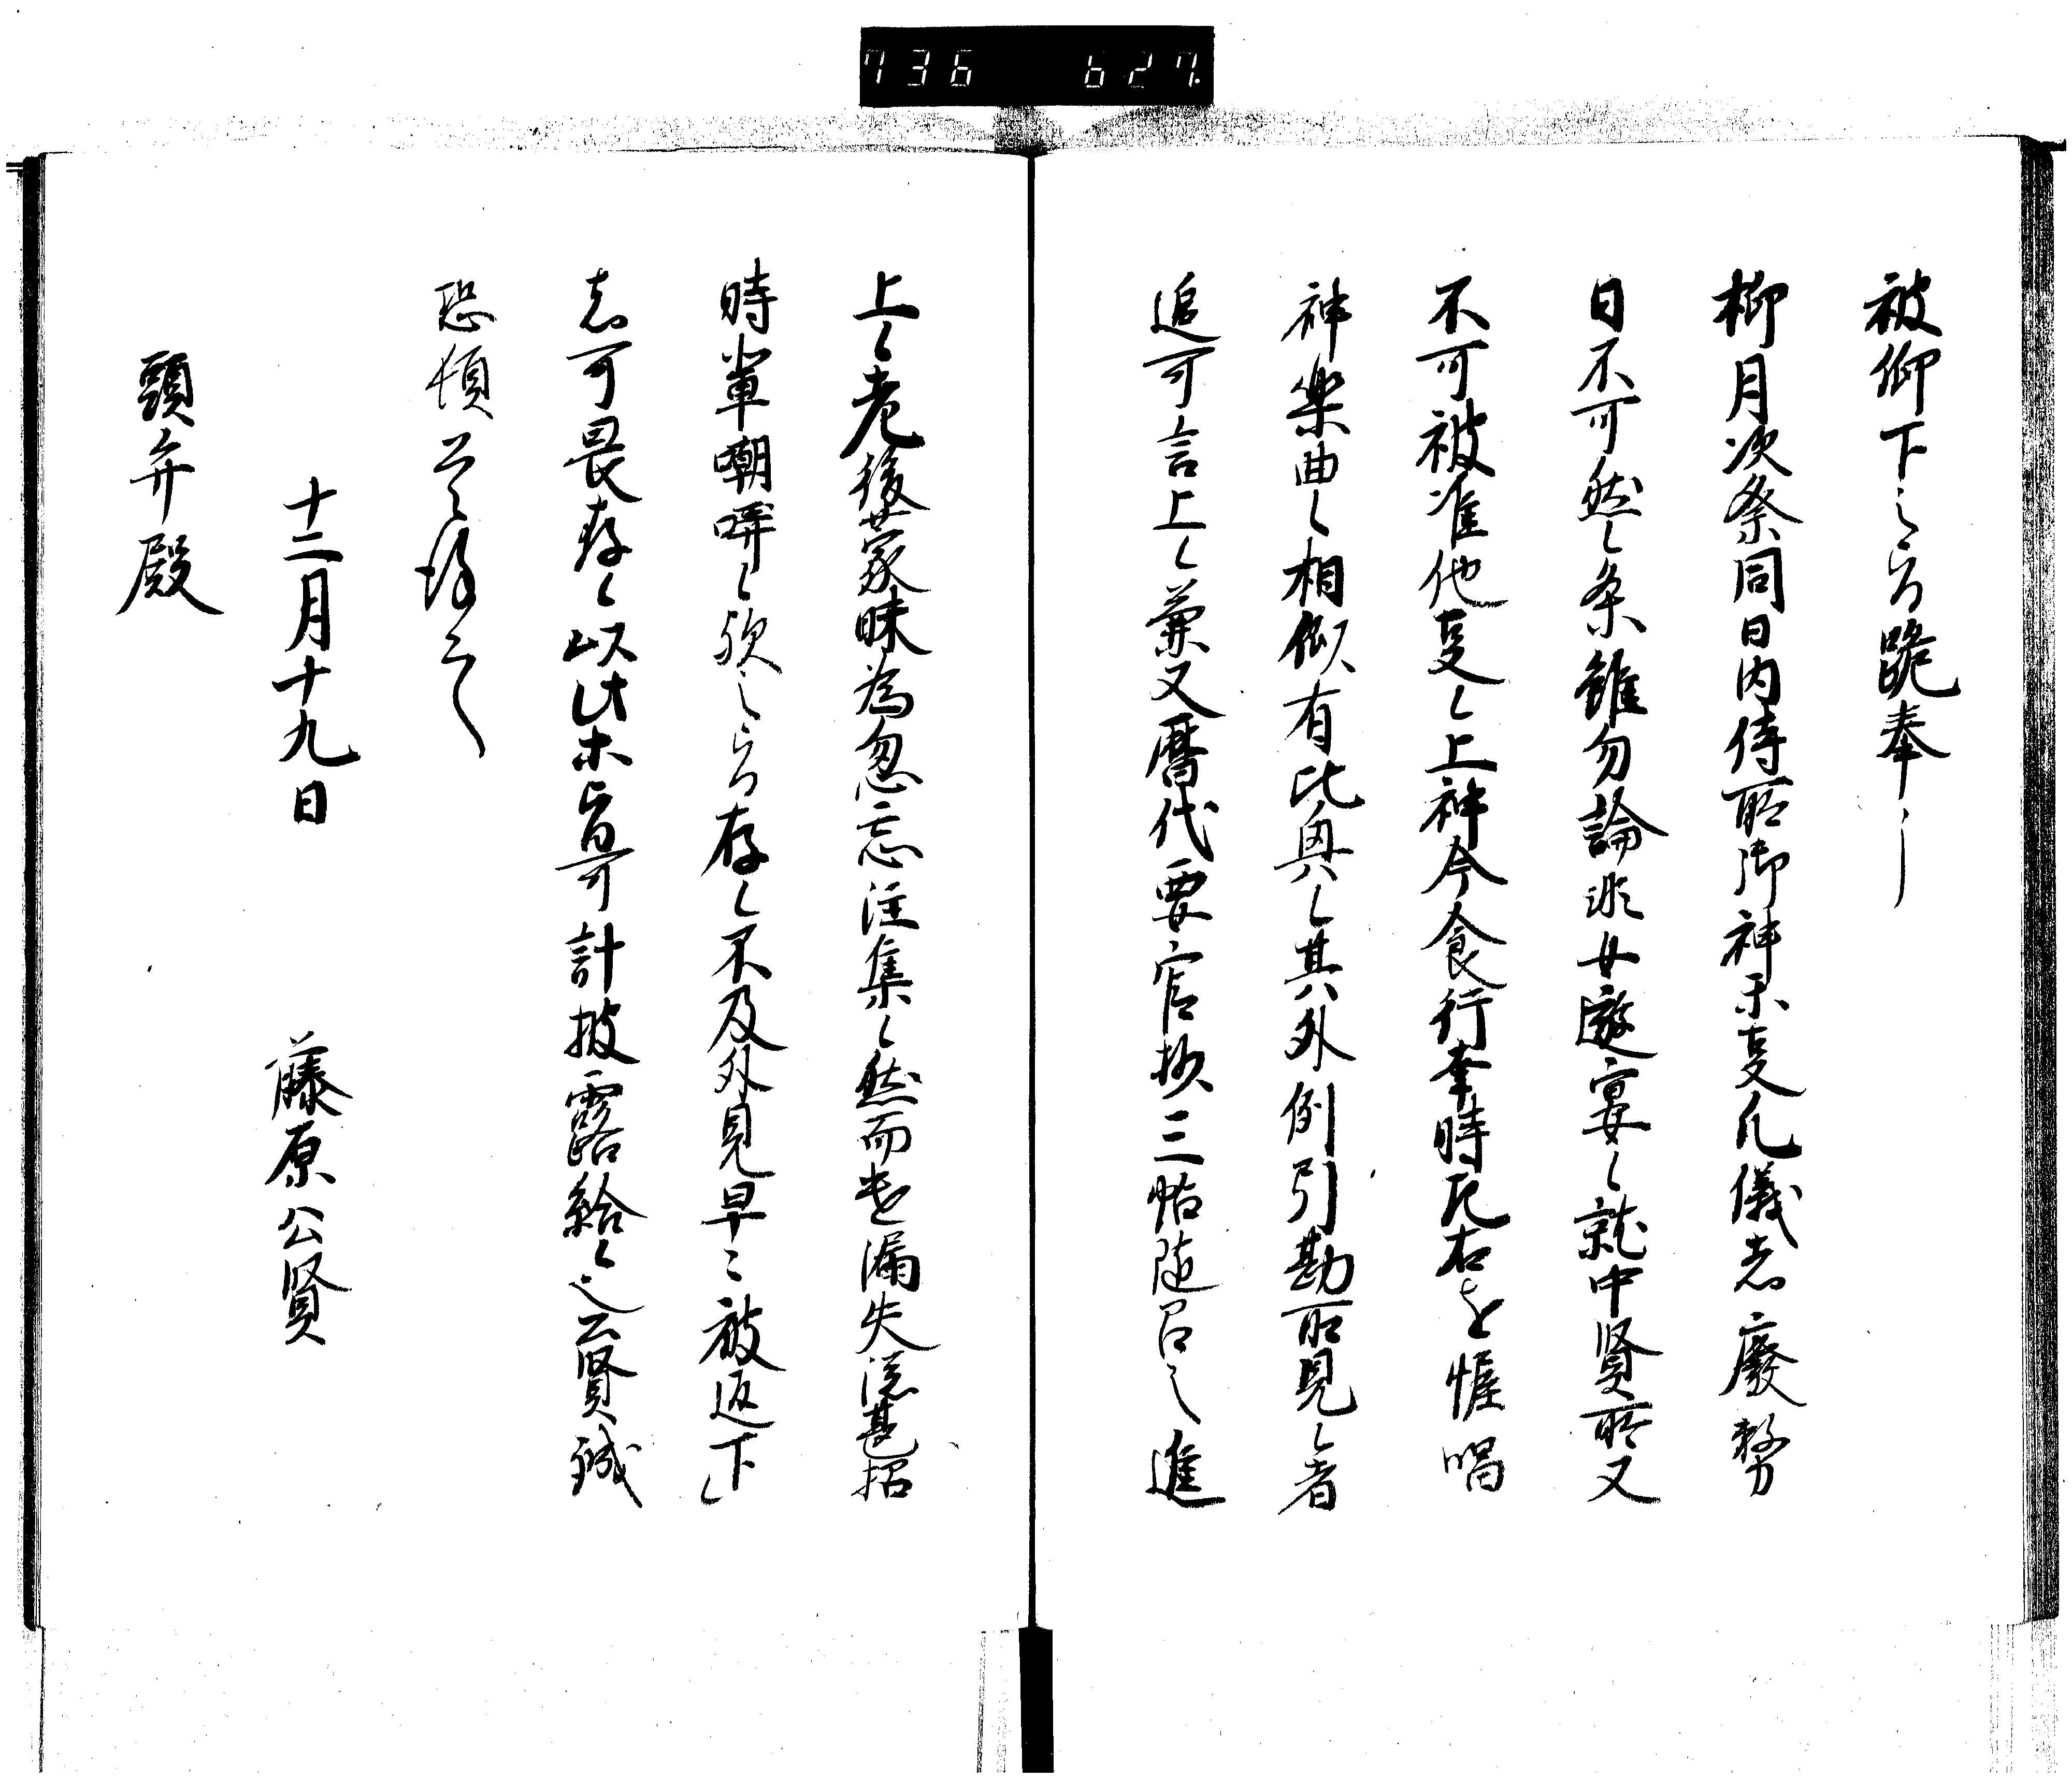 736 627
被仰下之旨跪奉了
抑月次祭同日内侍所御神楽事凡儀者廃務
日不可然之条雖勿論非女遊宴之就中賢所又
不可被准他事之上神今食行幸時於右近幄唱
神楽曲之相似有比興之其外例引勘所見之者
追可言上之兼又暦代要官抄三帖随召之進
上之老後蒙昧為忽忘注集之然而書漏失錯甚招
時輩嘲哢之歟之旨存之不及外見早々被返下之
者可畏存之以此等旨可計披露給之公賢誠
恐頓首謹言
十二月十九日 藤原公賢
頭弁殿